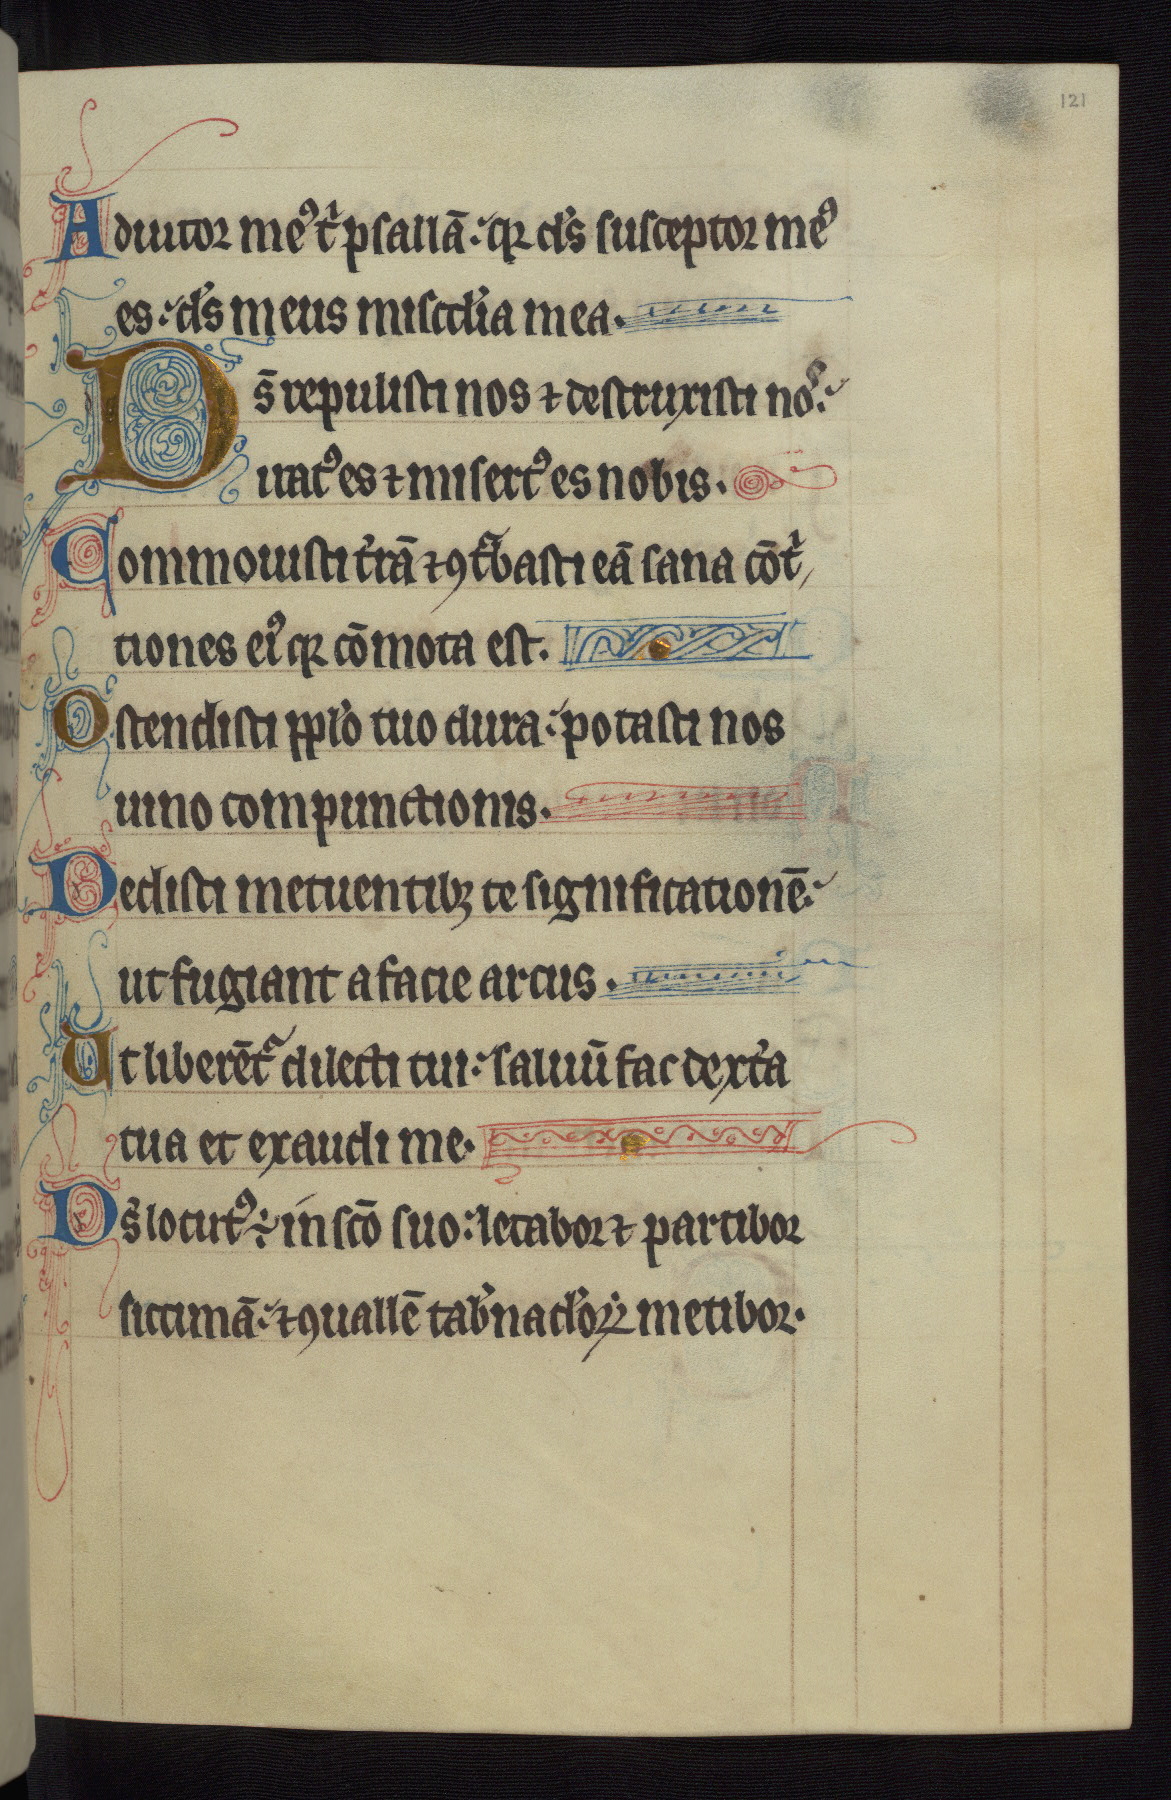 121
Adiutor me᷒ tⁱ psallā: qꝛ ds̄ susceptor me᷒
es: ds̄ meus misc̄dia mea.
Ds̄ repulisti nos ⁊ destruxisti no᷒:
irat᷒ es ⁊ misert᷒ es nobis.
Commouisti t̄rā ⁊ ꝯt̾basti eā sana cōtⁱ
tiones ei᷒ qꝛ cōmota est.
Ostendisti pp̄lo tuo dura: potasti nos
uino compunctionis.
Dedisti metuentibꝫ te significationē:
ut fugiant a facie arcus.
Ut liberēt᷑ dilecti tui: saluū fac dext̄a
tua et exaudi me.
Ds̄ locut᷒ ÷ in sc̄o suo: letabor ⁊ partibor
siccimā: ⁊ ꝯuallē tab̄nac̄loꝝ metibor.